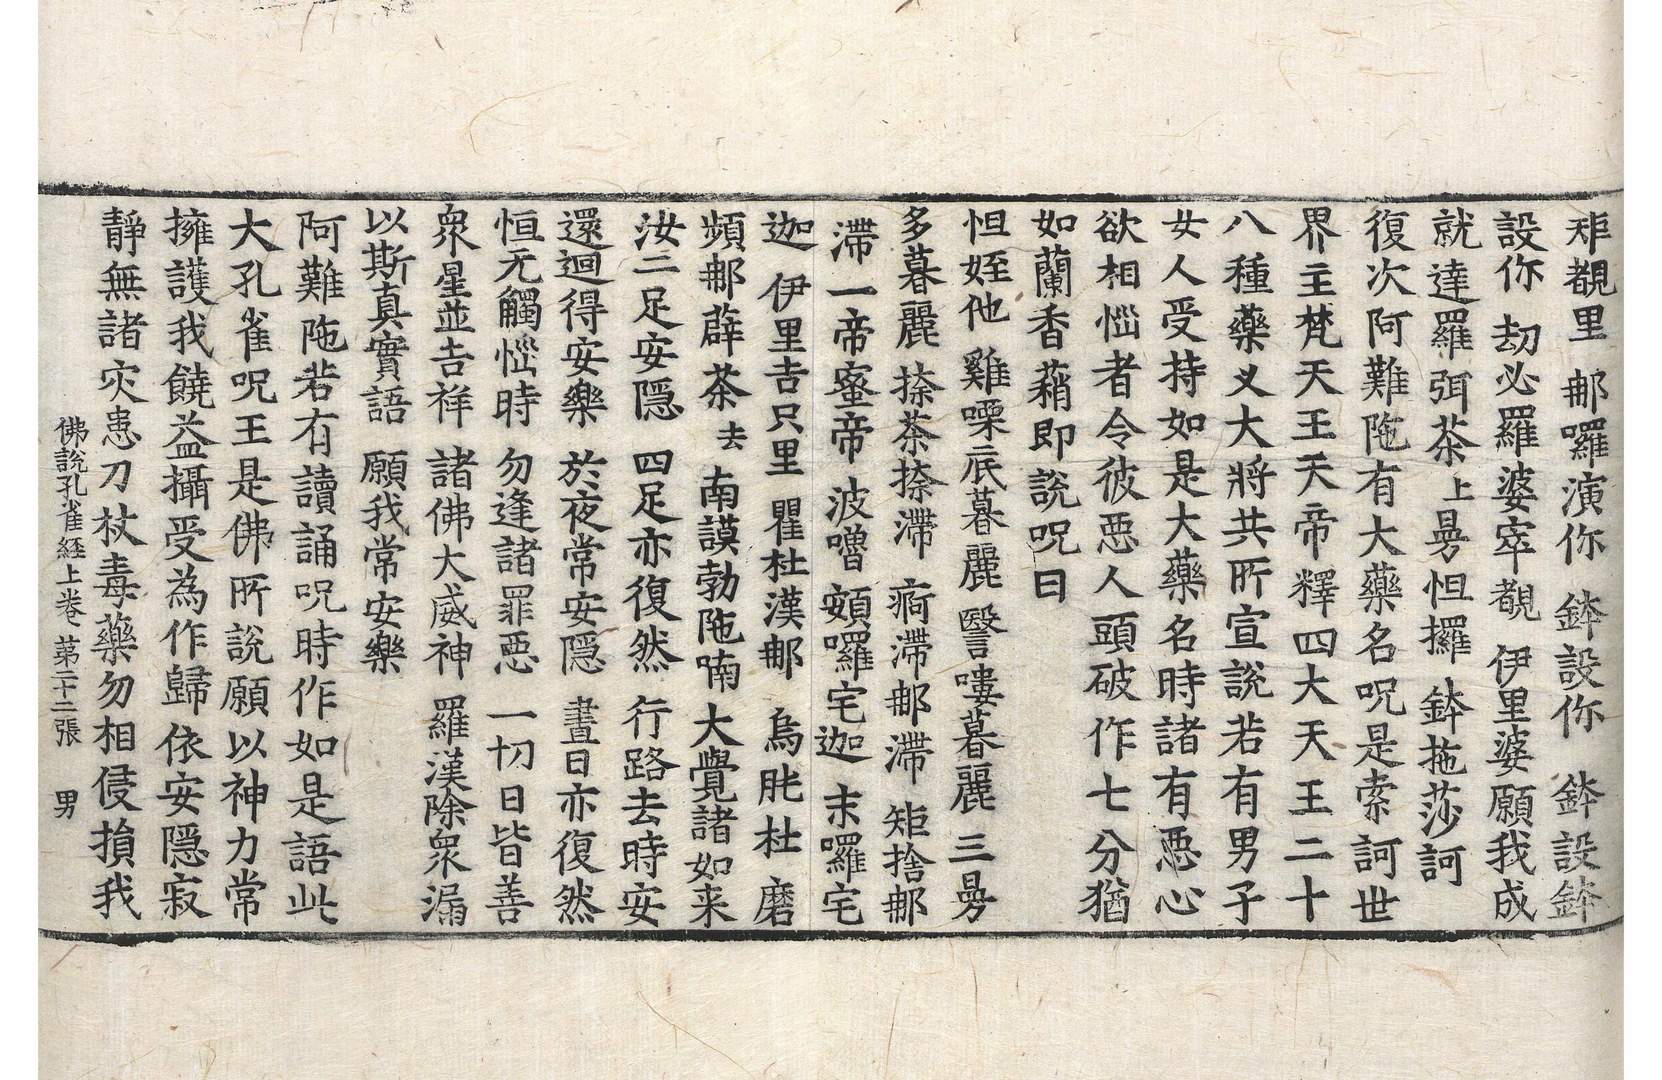 矩覩里 郍囉演你 鉢設你 鉢設鉢
設你 劫必羅婆窣覩 伊里婆願我成
就達羅弭茶上曼怛攞 鉢拖莎訶
復次阿難陁有大藥名呪是索訶世
界主梵天王天帝釋四大天王二十
八種藥叉大將共所宣說若有男子
女人受持如是大藥名時諸有惡心
欲相惱者令彼惡人頭破作七分猶
如蘭香蕱即說呪曰
怛姪他 雞㗚底暮麗 瞖嘍暮麗 三曼
多暮麗 捺茶捺滯 𤸷滯郍滯 矩捨郍
滯 一帝蜜帝 波嚕 頞囉宅迦 末囉宅
迦 伊里吉只里 瞿杜漢郍 烏㫯杜 磨
頻郍薜茶去 南謨勃陁喃 大覺諸如来
汝二足安隱 四足亦復然 行路去時安
還迴得安樂 於夜常安隱 晝日亦復然
恒无觸惱時 勿逢諸罪惡 一切日皆善
衆星並吉祥 諸佛大威神 羅漢除衆漏
以斯真實語 願我常安樂
阿難陁若有讀誦呪時作如是語此
大孔雀呪王是佛所說願以神力常
擁護我饒益攝受為作歸依安隱寂
靜無諸灾患刀杖毒藥勿相侵損我
佛說孔雀経上卷 第二十二張 男